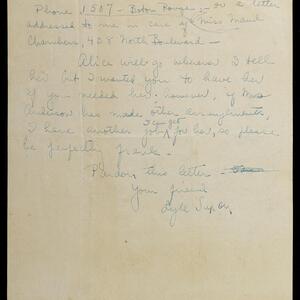 Phone 1507 - Baton Rouge; - or a letter
addressed to me in care of Miss Maud
Chambers, 428 North Boulevard -
Alice will go wherever I tell
her but I wanted you to have her
if you needed her. however, if Mrs
Anderson has made other arrangements,
I have another job I can get for her, so please
be perfectly frank.
Pardon this letter -
Your friend
Lyle Saxon